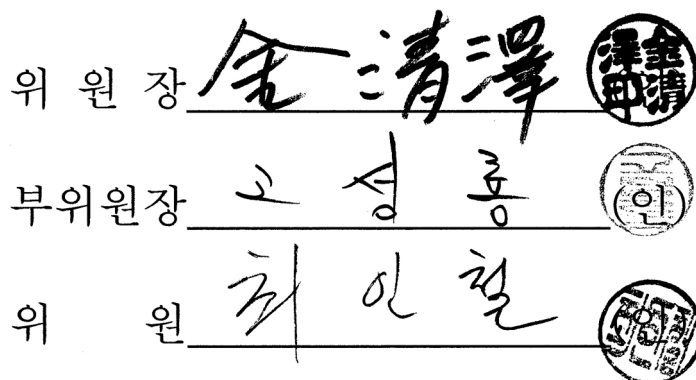 위 원 장 金 清 澤 金清澤印
부위원장 고 성 룡 (인)
위 원 최 인 철